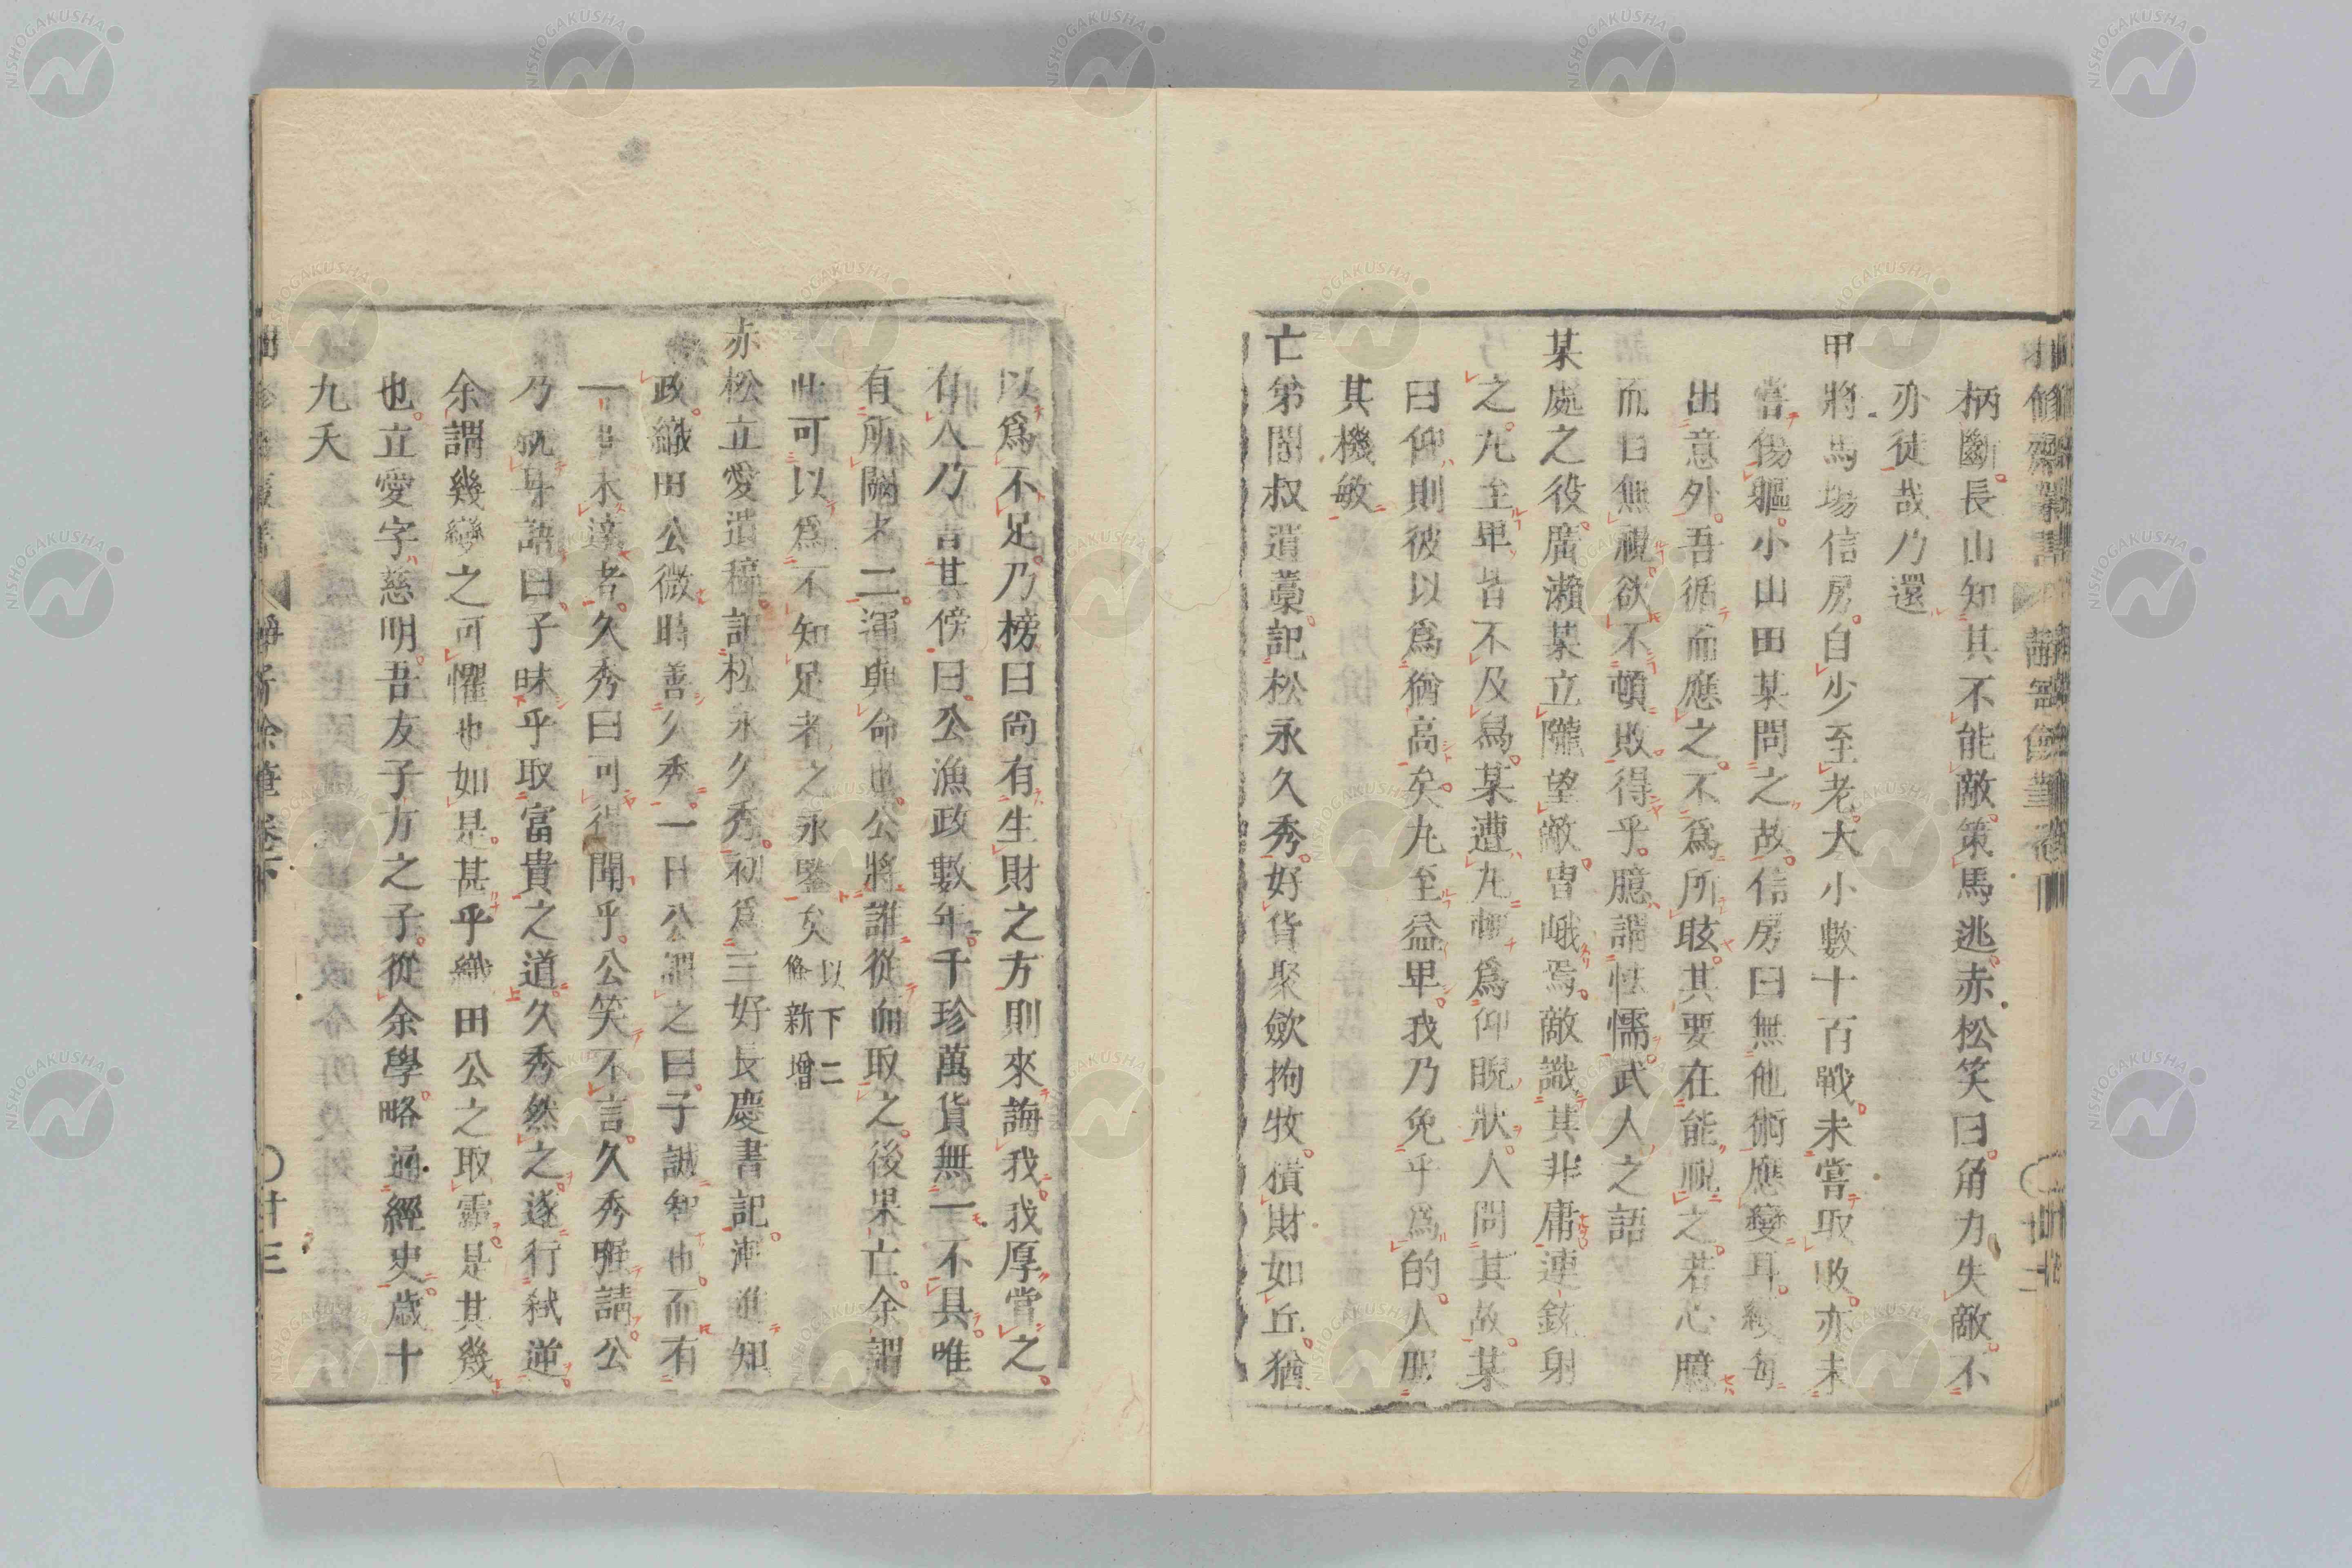 柄斷長山知其不能敵策馬逃赤松笑曰角力失敵不
亦徒哉乃還
甲將馬場信房自少至老大小數十百戰未嘗取敗亦未
嘗傷軀小山田某問之故信房曰無他術應變耳每
出意外吾循而應之不爲所眩其要在能視之若心臆
而目無視欲不頓敗得乎臆謂怯懦武人之語
某處之役廣瀨某立隴望敵冑峨焉敵識其非庸連銃射
之九至卑皆不及焉某遭九輙爲仰睨狀人問其故某
曰仰則彼以爲猶高矣九至益卑我乃免乎爲的人服
其機敏
亡弟誾叔遺藁記松永久秀好貨聚歛拘牧積財如丘猶
以爲不足乃榜曰尚有生財之方則來誨我我厚賞之
有人乃書其傍曰公漁政數年千珍萬貨無一不具唯
有所闕者二運與命也公將誰從而取之後果亡余謂
此可以爲不知足者之永鑒矣以下二條新增
赤松立愛遺稿記松永久秀初爲三好長慶書記漸進知
政織田公微時善久秀一日公謂之曰子誠智也而有
一未達者久秀曰可得聞乎公笑不言久秀強請公
乃就耳語曰子昧乎取富貴之道久秀然之遂行弑逆
余謂幾變之可懼也如是甚乎織田公之取靈是其幾
也立愛字慈明吾友子方之子從余學略通經史歲十
九夭
靜寄余筆卷下 〇廿三